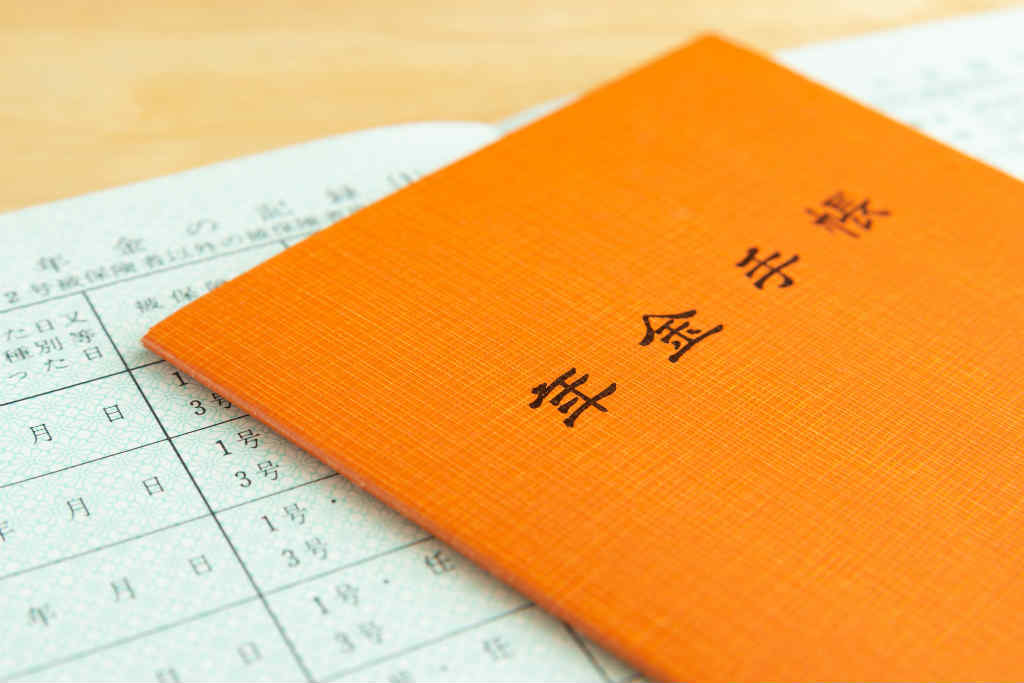 年金手帳
年金の記録(1)
2号被保険者以外の被保険者
た日又
種別等
った日
被保険
月 日
1
3号
月 日
1号
3号
年 月 日
1号・
3号
年 月 日
1号・任
3号
日 日
・任